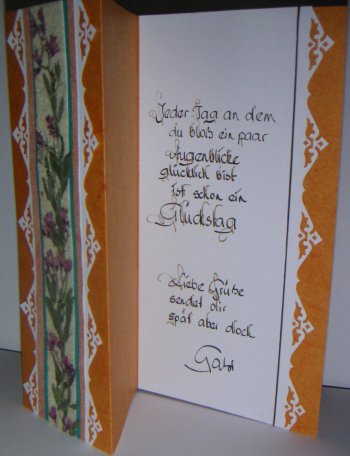 Jeder Tag an dem
du bloß ein paar
Augenblicke
glücklich bist
ist schon ein
Glückstag
Liebe Grüße
sendet dir
spät aber doch
Gabi